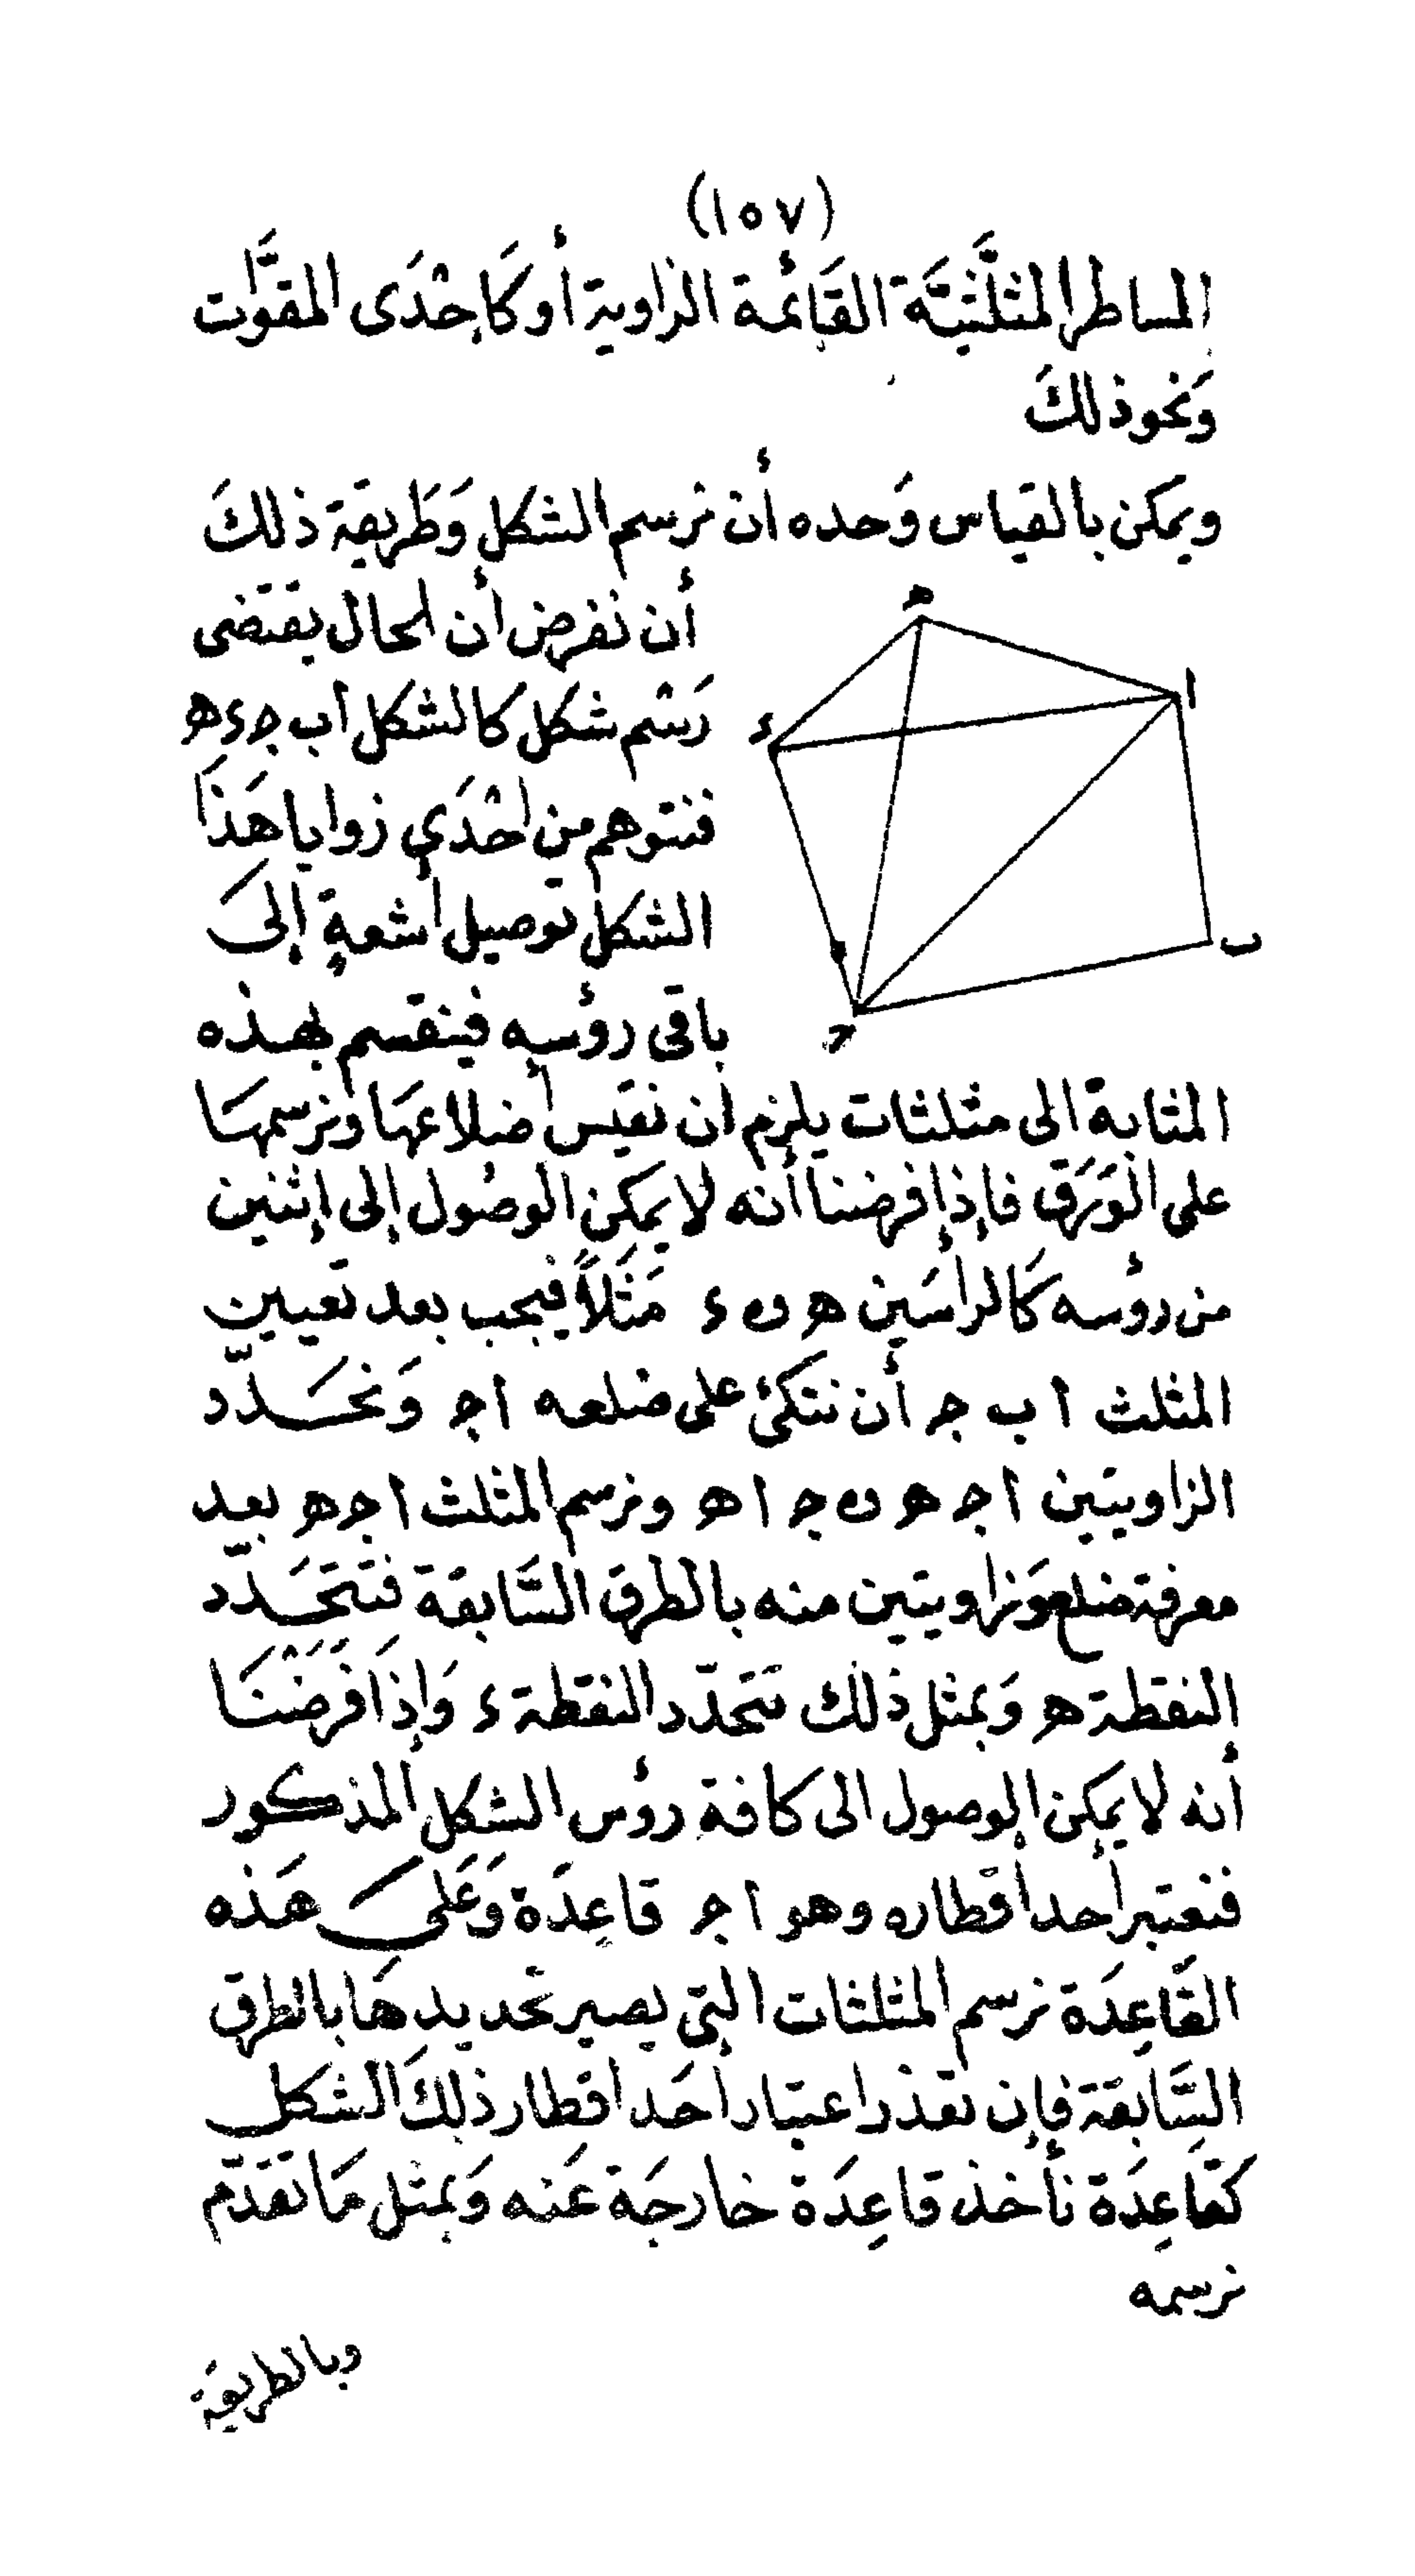 (١٥٧)
المساطر المثلَّثيَّة القَائمة الزاوية أو كَإحْدَى المقوَّات
وَنحو ذلكَ
ويمكن بالقياس وَحده أن نرسم الشكل وَطَريقة ذلكَ
أن نفرض أن الحال يقتضى
رَسْم شكل كالشكل اب جـ ء هـ
فنتوهم من احْدَى زوايا هَذَا
الشكل توصيل أشعةٍ إلىَ
باقى رؤسه فينقسم بهذه
المثابة الى مثلثات يلزم أن نقيس أضلاعهَا ونرسمهَا
على الوَرَق فإذا فرضنا أنه لا يمكن الوصُول إلى إثنين
من رؤسه كَالرأسَين هـ و ء مَثَلاً فيجب بعد تعيين
المثلث ا ب جـ أن نتكئ على ضلعه ا جـ وَنحَدّد
الزاويتين ا جـ هـ و جـ ا هـ ونرسم المثلث ا جـ هـ بعد
معرفة ضلع وَزاويتين منه بالطرق السَّابقة فتَتحَدّد
النقطة هـ وَبمثل ذلك تتحدّد النقطة ء وَإذَا فَرَضْنَا
أنه لا يمكن الوصول الى كافة رؤس الشكل المذكور
فنعتبر أحد أقطاره وهو ا جـ قاعِدَة وَعَلىَ هَذه
القَاعِدَة نرسم المثلثات التى يصير تحديدهَا بالطرق
السَّابقة فإن تعذر اعتبار أحَد اقطار ذلِكَ الشكل
كقاعِدَة نأخذ قاعِدَة خارجَة عَنه وَبمثل مَا تقَدّم
نرسمه
وبالطريقَة